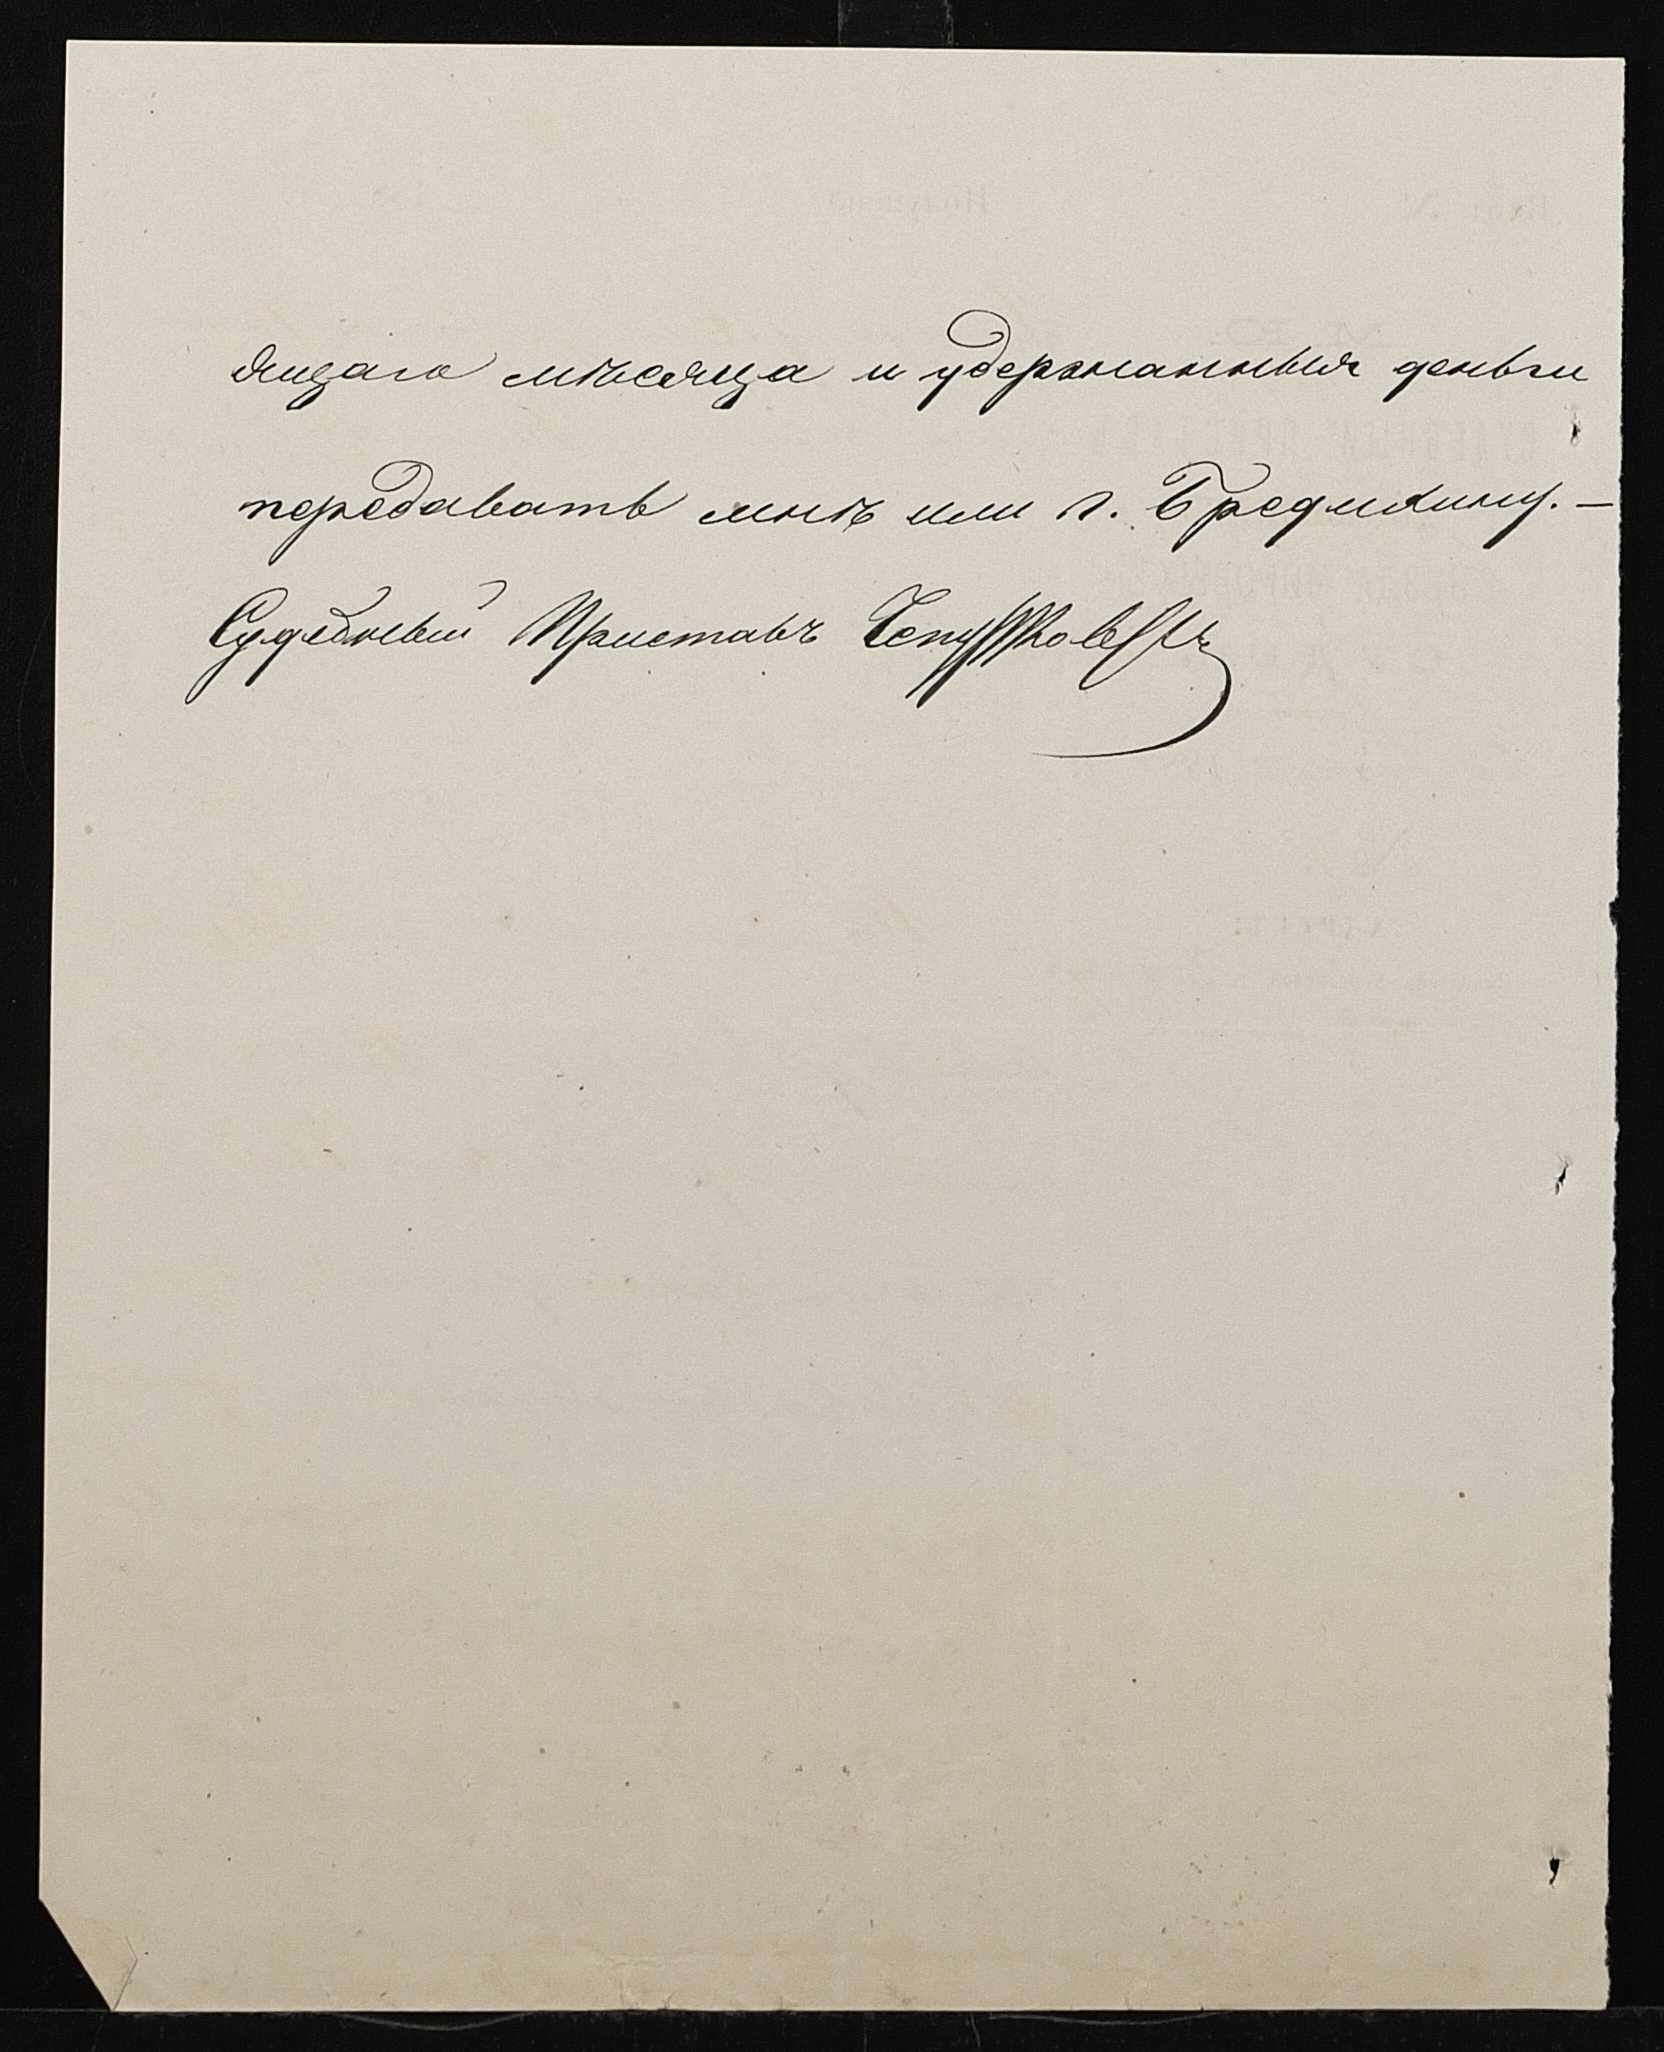 дящаго мѣсяца и удержанныя деньги
передавать мнѣ или г. Бредихину. —
Судебный Приставъ